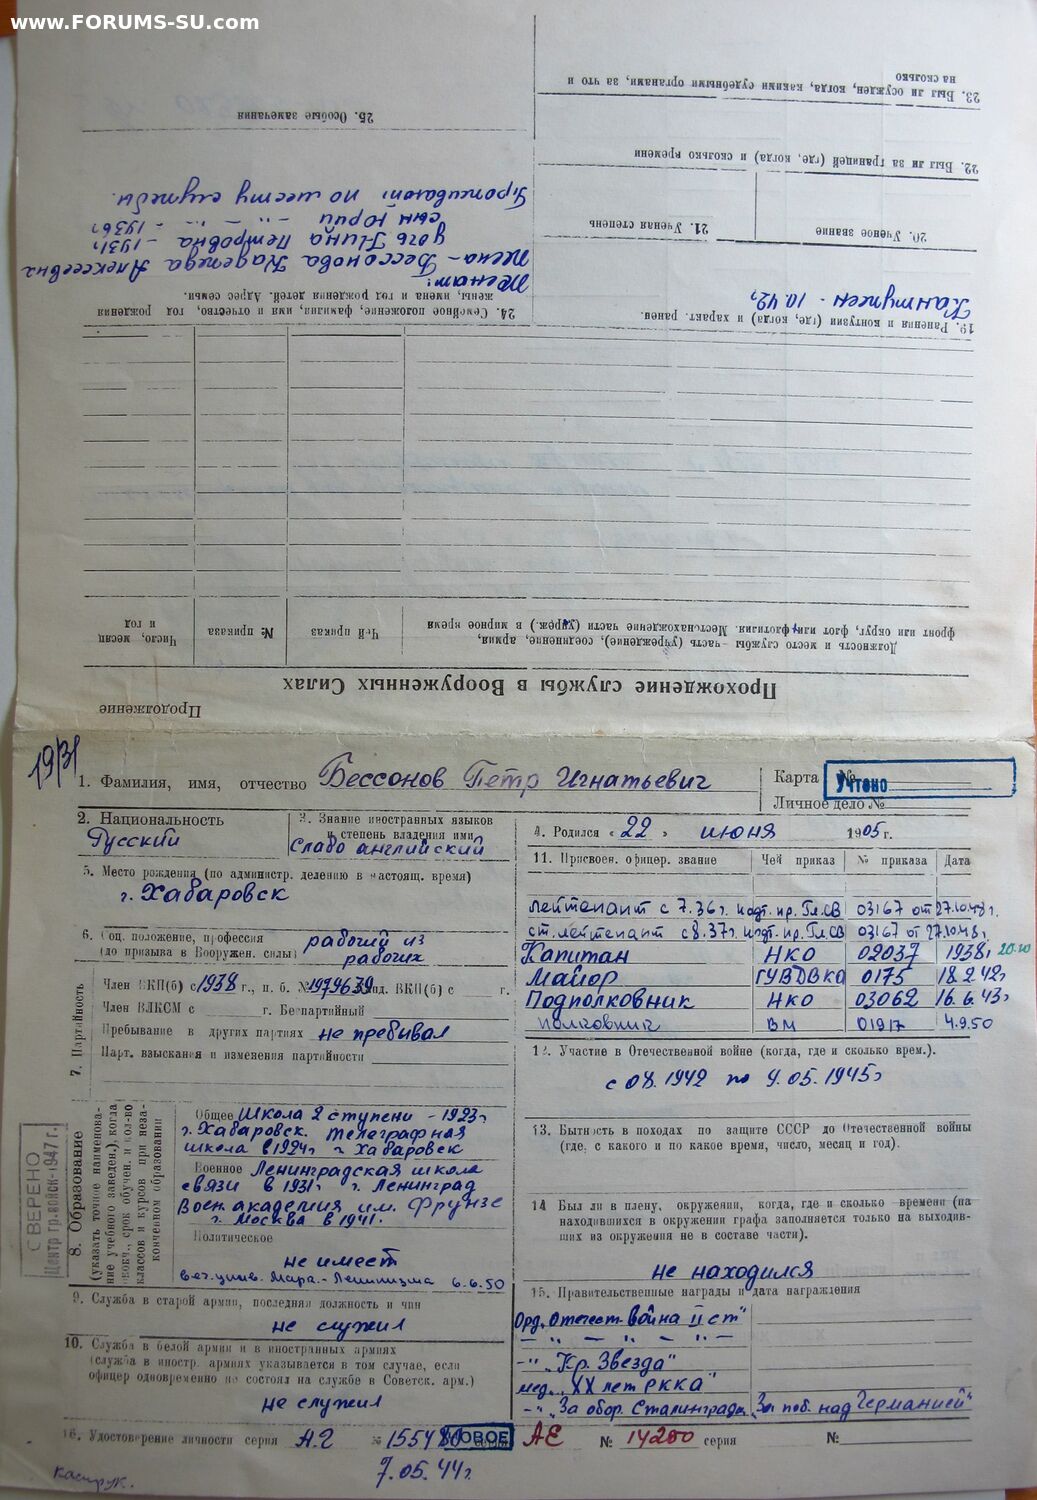 www.FORUMS-SU.com
19/31
1. Фамилия, имя, отчество Бессонов Петр Игнатьевич
Карта №
Учтено
Личное дело №
2. Национальность
Русский
3. Знание иностранных языков
и степень владения ими
слабо английский
4. Родился « 22 » июня 1905 г.
5. Место рождения (по администр. делению в настоящ. время)
г. Хабаровск
6. Соц. положение, профессия
(до призыва в Вооружен. силы)
рабочий из
рабочих
7. Партийность
Член ВКП(б) с 1938 г., п. б. № 1979639 Канд. ВКП(б) с г.
Член ВЛКСМ с г. Беспартийный
Пребывание в других партиях не пребывал
Парт. взыскания и изменения партийности
8. Образование
(указать точное наименова-
ние учебного заведен.), когда
оконч., срок обучен. и кол-во
классов и курсов при неза-
конченном образовании
Общее Школа 2 ступени - 1923г
г. Хабаровск. Телеграфная
школа в 1924г г Хабаровск
Военное Ленинградская школа
связи в 1931г г. Ленинград
Воен. академия им. Фрунзе
г. Москва в 1941г.
Политическое
не имеет
веч. унив. Марк.-Ленинизма 6.6.50
СВЕРЕНО
Центр гр. войск-1947 г.
9. Служба в старой армии, последняя должность и чин
не служил
10. Служба в белой армии и в иностранных армиях
(служба в иностр. армиях указывается в том случае, если
офицер одновременно не состоял на службе в Советск. арм.)
не служил
11. Присвоен. офицер. звание Чей приказ № приказа Дата
лейтенант с 7.36г. подт. пр. Гл.СВ 03167 от 27.10.48г.
ст. лейтенант с 8.37г. подт. пр. Гл.СВ 03167 от 27.10.48г.
Капитан НКО 02037 1938г 20.10
Майор ГУВДВКА 0175 18.2.42г
Подполковник НКО 03062 16.6.43г
полковник ВМ 01917 4.9.50
12. Участие в Отечественной войне (когда, где и сколько врем.).
с 08.1942 по 9.05.1945г
13. Бытность в походах по защите СССР до Отечественной войны
(где, с какого и по какое время, число, месяц и год).
14 Был ли в плену, окружении, когда, где и сколько времени (на
находившихся в окружении графа заполняется только на выходив-
ших из окружения не в составе части).
не находился
15. Правительственные награды и дата награждения
Орд. „Отечест. Война II ст"
— " — " — " —
-"- „Кр. Звезда"
мед. „XX лет РККА"
-"- „За обор. Сталинграда" „За поб. над Германией"
16. Удостоверение личности серия АГ № 155480 НОВОЕ серия АЕ № 14250 серия №
7.05.44г.
Продолжение
Прохождение службы в Вооруженных Силах
Число, месяц
и год
№ приказа
Чей приказ
Должность и место службы -часть (учреждение), соединение, армия,
фронт или округ, флот или флотилия. Местонахождение части (учреж.) в мирное время
19. Ранения и контузии (где, когда) и характ. ранен.
Контужен - 10.42г
20. Ученое звание
21. Ученая степень
22. Был ли за границей (где, когда) и сколько времени
23. Был ли осужден, когда, какими судебными органами, за что и
на сколько
24. Семейное положение, фамилия, имя и отчество, год рождения
жены, имена и год рождения детей. Адрес семьи.
Женат:
Жена - Бессонова Надежда Алексеевна
дочь Нина Петровна - 1931г
сын Юрий - " - - " - 1936г
Проживают: по месту службы.
25. Особые замечания